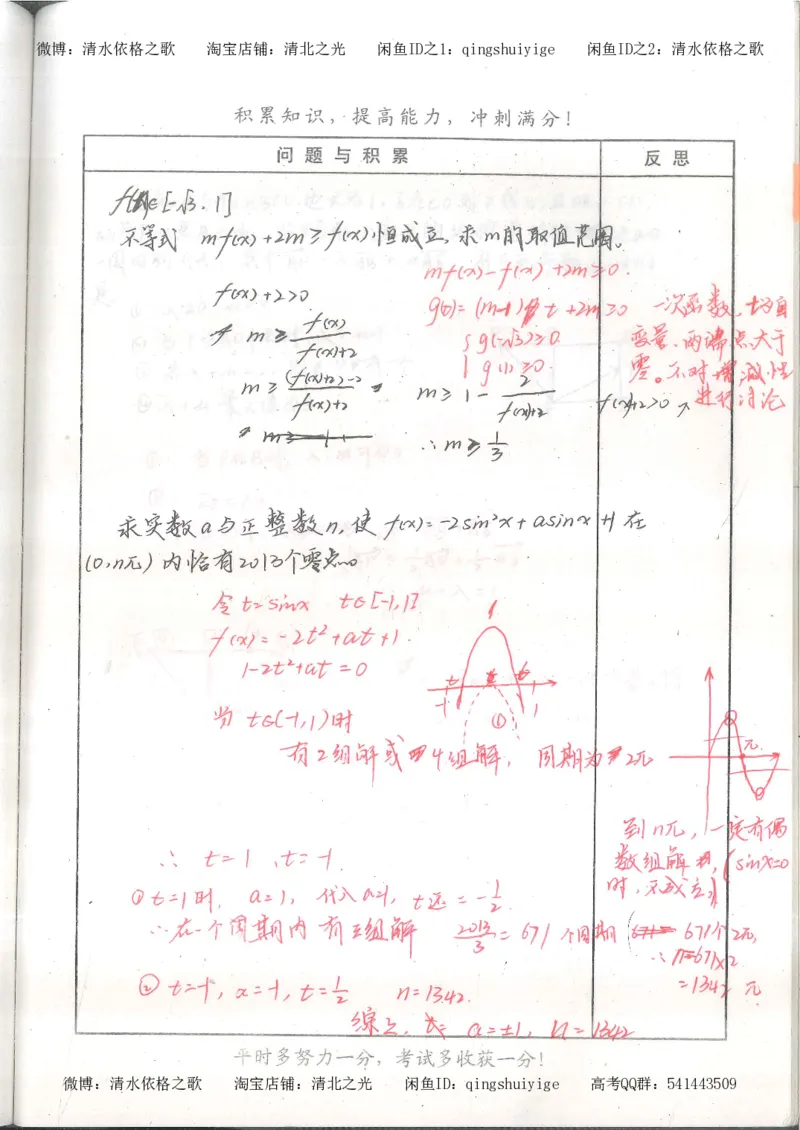 微博：清水依格之歌 淘宝店铺：清北之光 闲鱼ID之1：qingshuiyige 闲鱼ID之2：清水依格之歌
积累知识，提高能力，冲刺满分！
问题与积累 反思
f(x)∈[-√3，1]
不等式 mf(x)+2m≥f(x)恒成立，求m的取值范围。
mf(x)-f(x)+2m≥0.
f(x)+2>0
g(t)=(m-1)t+2m≥0 一次函数，t为自
变量，两端点大于
零。不对增减性
进行讨论
m≥f(x)/(f(x)+2)
{g(-√3)≥0
g(1)≥0.
m≥((f(x)+2)-2)/(f(x)+2)
m≥1-2/(f(x)+2) f(x)+2>0
∴m≥1/3
求实数a与正整数n，使f(x)=-2sin²x+asinx+1在
(0,nπ)内恰有2013个零点。
令t=sinx t∈[-1,1]
f(x)=-2t²+at+1.
1-2t²+at=0
-1 1
①
当t∈(-1,1)时
有2组解或4组解，周期为2π
π
到nπ，一定有偶
数组解，(sinx=0
时，不成立)
∴ t=1，t=-1.
①t=1时，a=1，代入a=1，t还=-1/2.
∴在一个周期内有三组解 2013/3=671个周期
671个2π，
∴n=671×2
=1342π
②t=-1，a=-1，t=1/2 n=1342.
综上，a=±1，n=1342
平时多努力一分，考试多收获一分！
微博：清水依格之歌 淘宝店铺：清北之光 闲鱼ID：qingshuiyige 高考QQ群：541443509